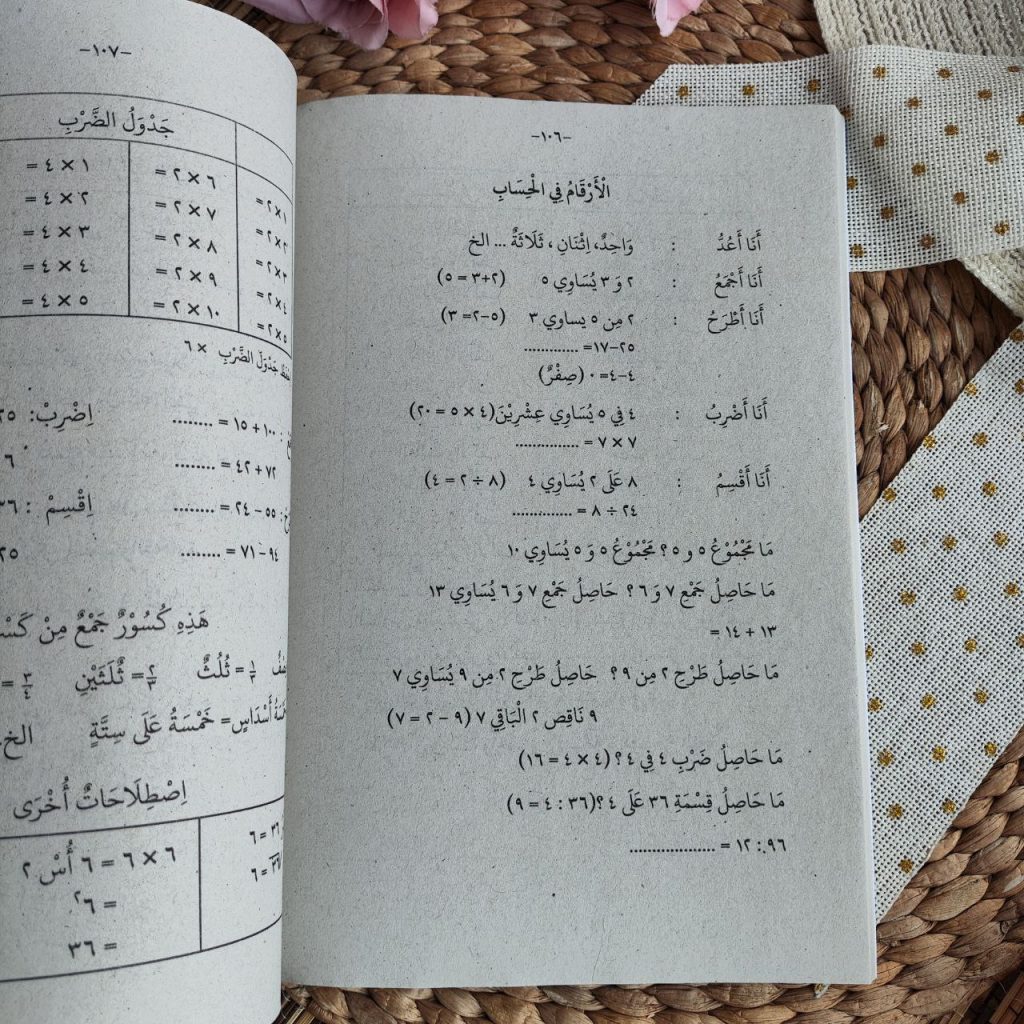 -١٠٦-
الْأَرْقَامُ فِي الْحِسَابِ
أَنَا أَعُدُّ : وَاحِدٌ، اِثْنَانِ ، ثَلَاثَةٌ ... الخ
أَنَا أَجْمَعُ : ٢ وَ ٣ يُسَاوِي ٥ (٢+٣ = ٥)
أَنَا أَطْرَحُ : ٢ مِن ٥ يساوي ٣ (٥-٢= ٣)
٢٥-١٧= .............
٤-٤= ٠ (صِفْرٌ)
أَنَا أَضْرِبُ : ٤ فِي ٥ يُسَاوِي عِشْرِيْنَ(٤ × ٥ = ٢٠)
٧ × ٧ = ...............
أَنَا أَقْسِمُ : ٨ عَلَى ٢ يُسَاوِي ٤ (٨ ÷ ٢ = ٤)
٢٤ ÷ ٨ = ..............
مَا مَجْمُوْعُ ٥ و ٥ ؟ مَجْمُوْعُ ٥ وَ ٥ يُسَاوِي ١٠
مَا حَاصِلُ جَمْعِ ٧ وَ ٦ ؟ حَاصِلُ جَمْعِ ٧ وَ ٦ يُسَاوِي ١٣
١٣ + ١٤ =
مَا حَاصِلُ طَرْحِ ٢ مِن ٩ ؟ حَاصِلُ طَرْحِ ٢ مِن ٩ يُسَاوِي ٧
٩ نَاقِص ٢ الْبَاقِي ٧ (٩ - ٢ = ٧)
مَا حَاصِلُ ضَرْبِ ٤ فِي ٤ ؟ (٤ × ٤ = ١٦)
مَا حَاصِلُ قِسْمَةِ ٣٦ عَلَى ٤ ؟(٣٦ : ٤ = ٩)
٩٦: ١٢ = ...................
-١٠٧-
جَدْوَلُ الضَّرْبِ
١ × ٢ = ٦ × ٢ = ١ × ٤ =
٢ × ٢ = ٧ × ٢ = ٢ × ٤ =
٣ × ٢ = ٨ × ٢ = ٣ × ٤ =
٤ × ٢ = ٩ × ٢ = ٤ × ٤ =
٥ × ٢ = ١٠ × ٢ = ٥ × ٤ =
جَدْوَلَ الضَّرْبِ × ٦
: ١٠٠ + ١٥ = ........ اِضْرِبْ:
٧٢ + ٤٢ = ........
: ٥٥ - ٢٤ = ........ اِقْسِمْ :
٩٤ - ٧١ = ........
هَذِهِ كُسُوْرٌ جَمْعٌ مِنْ
= ثُلُثٌ ٢/٣ = ثُلَثَيْنِ ٣/٤ =
أَسْدَاسٍ= خَمْسَةُ عَلَى سِتَّةٍ الخ
اِصْطِلَاحَاتٌ أُخْرَى
٣٦ = ٦ ٦ × ٦ = ٦ أُسْ ٢
٣٦ = ٦ = ٦٢
= ٣٦